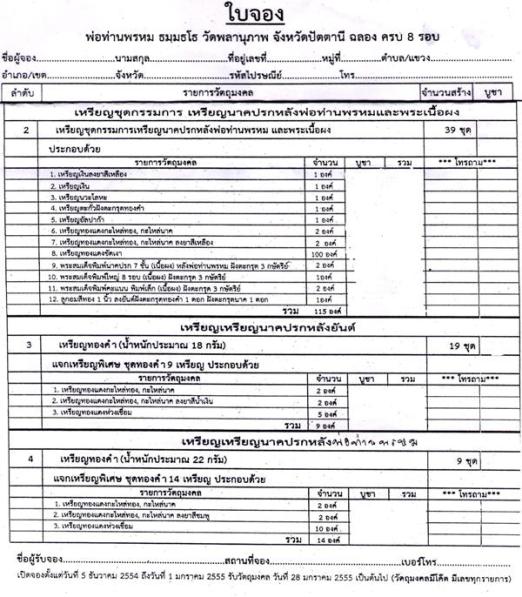 ใบจอง
พ่อท่านพรหม ธมฺมธโธ วัดพลานุภาพ จังหวัดปัตตานี ฉลอง ครบ 8 รอบ
ชื่อผู้จอง นามสกุล ที่อยู่เลขที่ หมู่ที่ ตำบล/แขวง
อำเภอ/เขต จังหวัด รหัสไปรษณีย์ โทร
ลำดับ รายการวัตถุมงคล จำนวนสร้าง บูชา
เหรียญชุดกรรมการ เหรียญนาคปรกหลังพ่อท่านพรหมและพระเนื้อผง
2 เหรียญชุดกรรมการเหรียญนาคปรกหลังพ่อท่านพรหม และพระเนื้อผง 39 ชุด
ประกอบด้วย
รายการวัตถุมงคล จำนวน บูชา รวม *** โทรถาม ***
1. เหรียญเงินลงยาสีเหลือง 1 องค์
2. เหรียญเงิน 1 องค์
3. เหรียญนวะโลหะ 1 องค์
4. เหรียญตะกั่วฝังตะกรุดทองคำ 1 องค์
5. เหรียญอัลปาก้า 1 องค์
6. เหรียญทองแดงกะไหล่ทอง, กะไหล่นาค 2 องค์
7. เหรียญทองแดงกะไหล่ทอง, กะไหล่นาค ลงยาสีเหลือง 2 องค์
8. เหรียญทองแดงขัดเงา 100 องค์
9. พระสมเด็จพิมพ์นาคปรก 7 ชั้น (เนื้อผง) หลังพ่อท่านพรหม ฝังตะกรุด 3 กษัตริย์ 2 องค์
10. พระสมเด็จพิมพ์ใหญ่ 8 รอบ (เนื้อผง) ฝังตะกรุด 3 กษัตริย์ 1องค์
11. พระสมเด็จพิมพ์คะแนน พิมพ์เล็ก (เนื้อผง) ฝังตะกรุด 3 กษัตริย์ 2 องค์
12. ลูกอมสีทอง 1 นิ้ว ลงยันต์ฝังตะกรุดทองคำ 1 ดอก ฝังตะกรุดนาค 1 ดอก 1องค์
รวม 115 องค์
เหรียญเหรียญนาคปรกหลังยันต์
3 เหรียญทองคำ (น้ำหนักประมาณ 18 กรัม) 19 ชุด
แจกเหรียญพิเศษ ชุดทองคำ 9 เหรียญ ประกอบด้วย
รายการวัตถุมงคล จำนวน บูชา รวม *** โทรถาม ***
1. เหรียญทองแดงกะไหล่ทอง, กะไหล่นาค 2 องค์
2. เหรียญทองแดงกะไหล่ทอง, กะไหล่นาค ลงยาสีน้ำเงิน 2 องค์
3. เหรียญทองแดงห่วงเชื่อม 5 องค์
รวม 9 องค์
เหรียญเหรียญนาคปรกหลังพ่อท่านพรหม
4 เหรียญทองคำ (น้ำหนักประมาณ 22 กรัม) 9 ชุด
แจกเหรียญพิเศษ ชุดทองคำ 14 เหรียญ ประกอบด้วย
รายการวัตถุมงคล จำนวน บูชา รวม *** โทรถาม ***
1. เหรียญทองแดงกะไหล่ทอง, กะไหล่นาค 2 องค์
2. เหรียญทองแดงกะไหล่ทอง, กะไหล่นาค ลงยาสีชมพู 2 องค์
3. เหรียญทองแดงห่วงเชื่อม 10 องค์
รวม 14 องค์
ชื่อผู้รับจอง สถานที่จอง เบอร์โทร
เปิดจองตั้งแต่วันที่ 5 ธันวาคม 2554 ถึงวันที่ 1 มกราคม 2555 รับวัตถุมงคล วันที่ 28 มกราคม 2555 เป็นต้นไป (วัตถุมงคลมีโค๊ด มีเลขทุกรายการ)